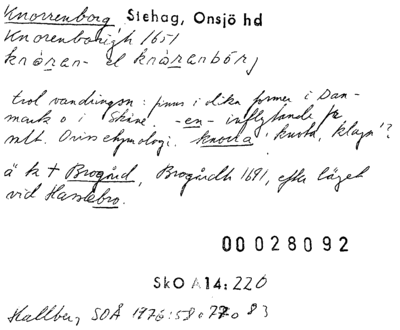 Knorrenborg Stehag, Onsjö hd
Knorenborigh 1651
knåran- el knåranbårj
trol vandringsn: finns i olika former i Dan-
mark o i Skåne. -en- inflytande fr
nlt. Oviss etymologi. knorra 'knota, klaga'?
ä k + Brogård, Brogårdh 1691, efter läget
vid Hasslebro.
00028092
SkO A14: 220
Hallberg SOÅ 1976:58 o 77 o 83